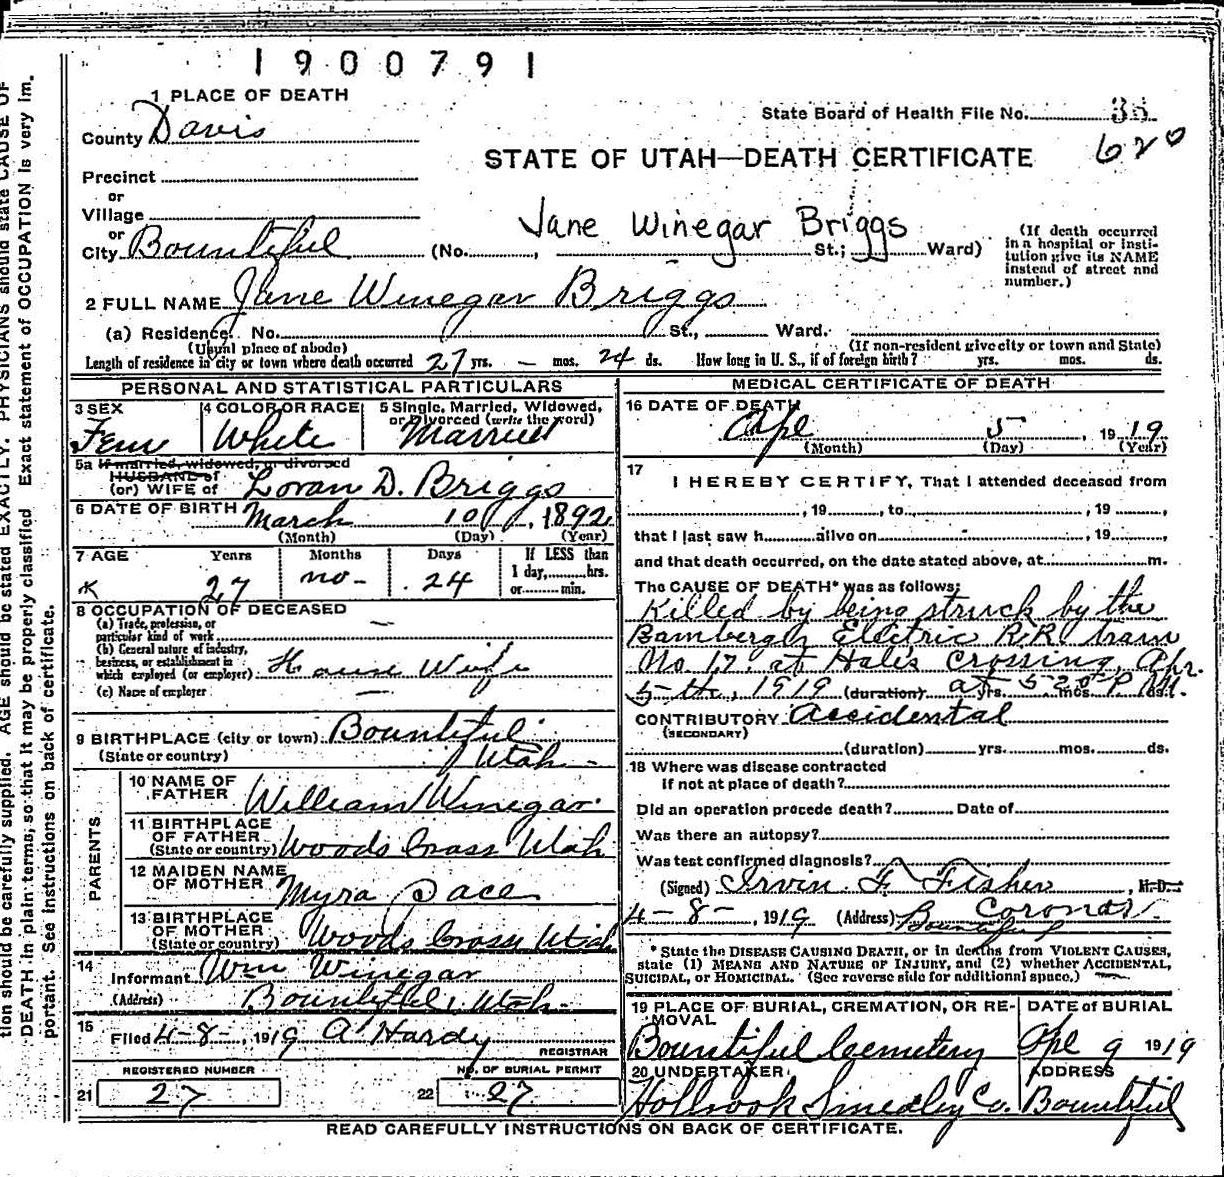 1900791
1 PLACE OF DEATH
State Board of Health File No. 35
620
County Davis
STATE OF UTAH—DEATH CERTIFICATE
Precinct
or
Village
Jane Winegar Briggs
or
City Bountiful (No. , St.; Ward)
(If death occurred in a hospital or insti-
tution give its NAME
instead of street and
number.)
2 FULL NAME Jane Winegar Briggs
(a) Residence. No. St., Ward.
(Usual place of abode) (If non-resident give city or town and State)
Length of residence in city or town where death occurred 27 yrs. — mos. 24 ds. How long in U. S., if of foreign birth? yrs. mos. ds.
PERSONAL AND STATISTICAL PARTICULARS
3 SEX 4 COLOR OR RACE 5 Single, Married, Widowed,
or Divorced (write the word)
Fem White Married
5a If married, widowed, or divorced
HUSBAND of
(or) WIFE of Loran D. Briggs
6 DATE OF BIRTH March 10, 1892
(Month) (Day) (Year)
7 AGE Years Months Days If LESS than
1 day, hrs.
or min.
27 no- 24
8 OCCUPATION OF DECEASED
(a) Trade, profession, or
particular kind of work —
(b) General nature of industry,
business, or establishment in
which employed (or employer) House Wife
(c) Name of employer —
9 BIRTHPLACE (city or town) Bountiful
(State or country) Utah -
PARENTS
10 NAME OF
FATHER William Winegar
11 BIRTHPLACE
OF FATHER
(State or country) Woods Cross Utah
12 MAIDEN NAME
OF MOTHER Myra Pace
13 BIRTHPLACE
OF MOTHER
(State or country) Woods Cross Utah
14
Informant Wm Winegar
(Address) Bountiful, Utah-
15
Filed 4-8-, 1919 A. Hardy
REGISTRAR
REGISTERED NUMBER NO. OF BURIAL PERMIT
21 27 22 27
MEDICAL CERTIFICATE OF DEATH
16 DATE OF DEATH
Apl 5, 1919
(Month) (Day) (Year)
17
I HEREBY CERTIFY, That I attended deceased from
, 19 , to , 19 ,
that I last saw h alive on , 19 ,
and that death occurred, on the date stated above, at m.
The CAUSE OF DEATH* was as follows:
Killed by being struck by the
Bamberger Electric R.R. train
No. 17 at Hales Crossing, Apr.
5-th, 1919 (duration) at yrs. 5:20 mos. P.M. ds.
CONTRIBUTORY Accidental
(SECONDARY)
(duration) yrs. mos. ds.
18 Where was disease contracted
If not at place of death?
Did an operation precede death? Date of
Was there an autopsy?
Was test confirmed diagnosis?
(Signed) Irvin F. Fisher, M.D.
Coroner
4-8-, 1919 (Address) Bountiful
* State the DISEASE CAUSING DEATH, or in deaths from VIOLENT CAUSES,
state (1) MEANS AND NATURE OF INJURY, and (2) whether ACCIDENTAL,
SUICIDAL, or HOMICIDAL. (See reverse side for additional space.)
19 PLACE OF BURIAL, CREMATION, OR RE-
MOVAL
Bountiful Cemetery
DATE OF BURIAL
Apl 9 1919
20 UNDERTAKER
Holbrook Smedley Co.
ADDRESS
Bountiful
READ CAREFULLY INSTRUCTIONS ON BACK OF CERTIFICATE.
tion should be carefully supplied. AGE should be stated EXACTLY. PHYSICIANS should state CAUSE OF
DEATH in plain terms, so that it may be properly classified. Exact statement of OCCUPATION is very im.
portant. See instructions on back of certificate.